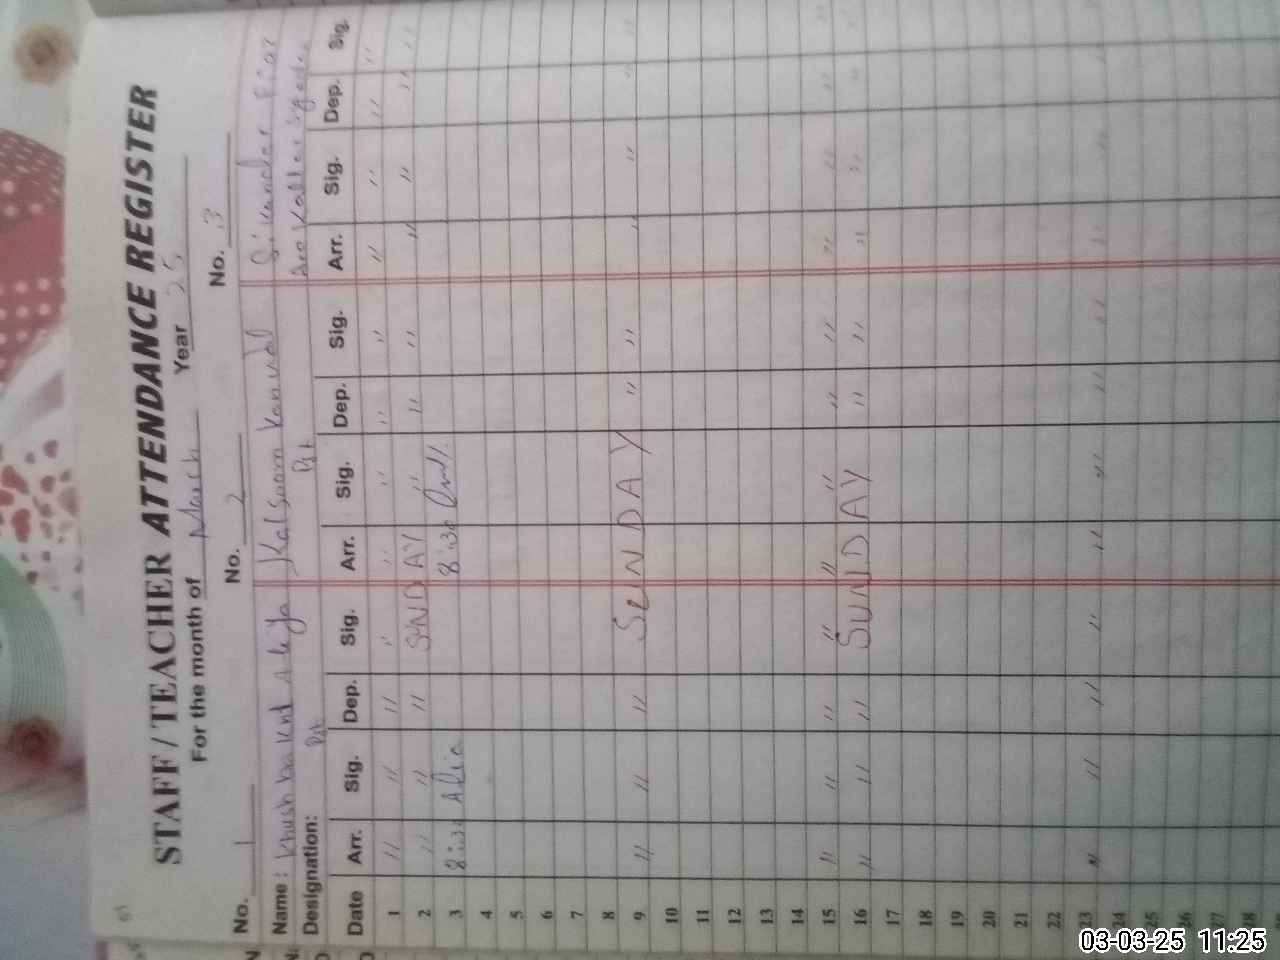 STAFF/TEACHER ATTENDANCE REGISTER
For the month of March Year 25
No. 1 No. 2 No. 3
Name: Khushbakht Aleja Kalsoom Kanwal Sikander
Designation: Pst Pst
Date Arr. Sig. Dep. Sig. Arr. Sig. Dep. Sig. Arr. Sig. Dep. Sig.
1 " " " " " " " " " " " "
2 " " " SUNDAY " " " " " " "
3 8:30 8:30
4
5
6
7
8
9 " " " SUNDAY " " " " " "
10
11
12
13
14
15 " " " " " " " " " " " "
16 " " " SUNDAY " " " " " "
17
18
19
20
21
22
23 " " " " " " " " " "
24
25
26
27
28
03-03-25 11:25